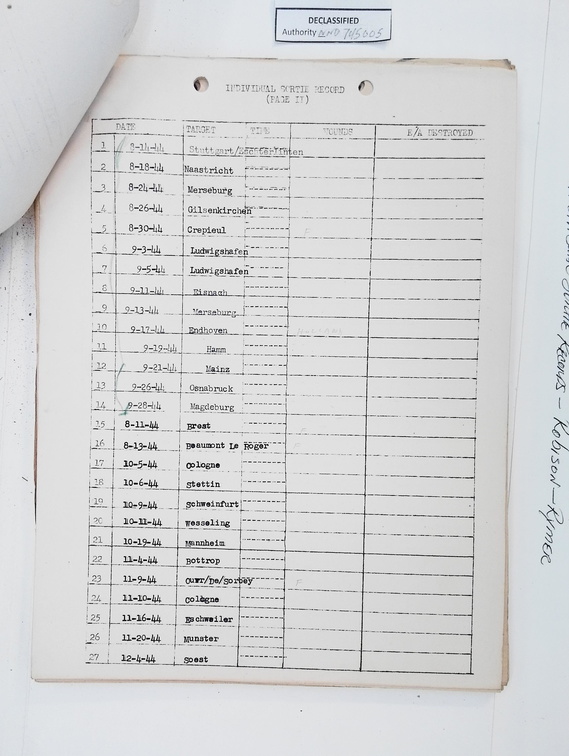 DECLASSIFIED
Authority NND 745005
INDIVIDUAL SORTIE RECORD
(PAGE II)
DATE TARGET TIME WOUNDS E/A DESTROYED
1 8-14-44 Stuttgart/
2 8-18-44 Maastricht
3 8-24-44 Merseburg
4 8-26-44 Gilsenkirchen
5 8-30-44 Crepieul
6 9-3-44 Ludwigshafen
7 9-5-44 Ludwigshafen
8 9-11-44 Eisnach
9 9-13-44 Merseburg
10 9-17-44 Endhoven
11 9-19-44 Hamm
12 9-21-44 Mainz
13 9-26-44 Osnabruck
14 9-28-44 Magdeburg
15 8-11-44 Brest
16 8-13-44 Beaumont Le Roger
17 10-5-44 Cologne
18 10-6-44 Stettin
19 10-9-44 Schweinfurt
20 10-11-44 Wesseling
21 10-19-44 Mannheim
22 11-4-44 Bottrop
23 11-9-44 Ouvr/De/Sorbey
24 11-10-44 Cologne
25 11-16-44 Eschweiler
26 11-20-44 Munster
27 12-4-44 Soest
Records - Robison - Rymer